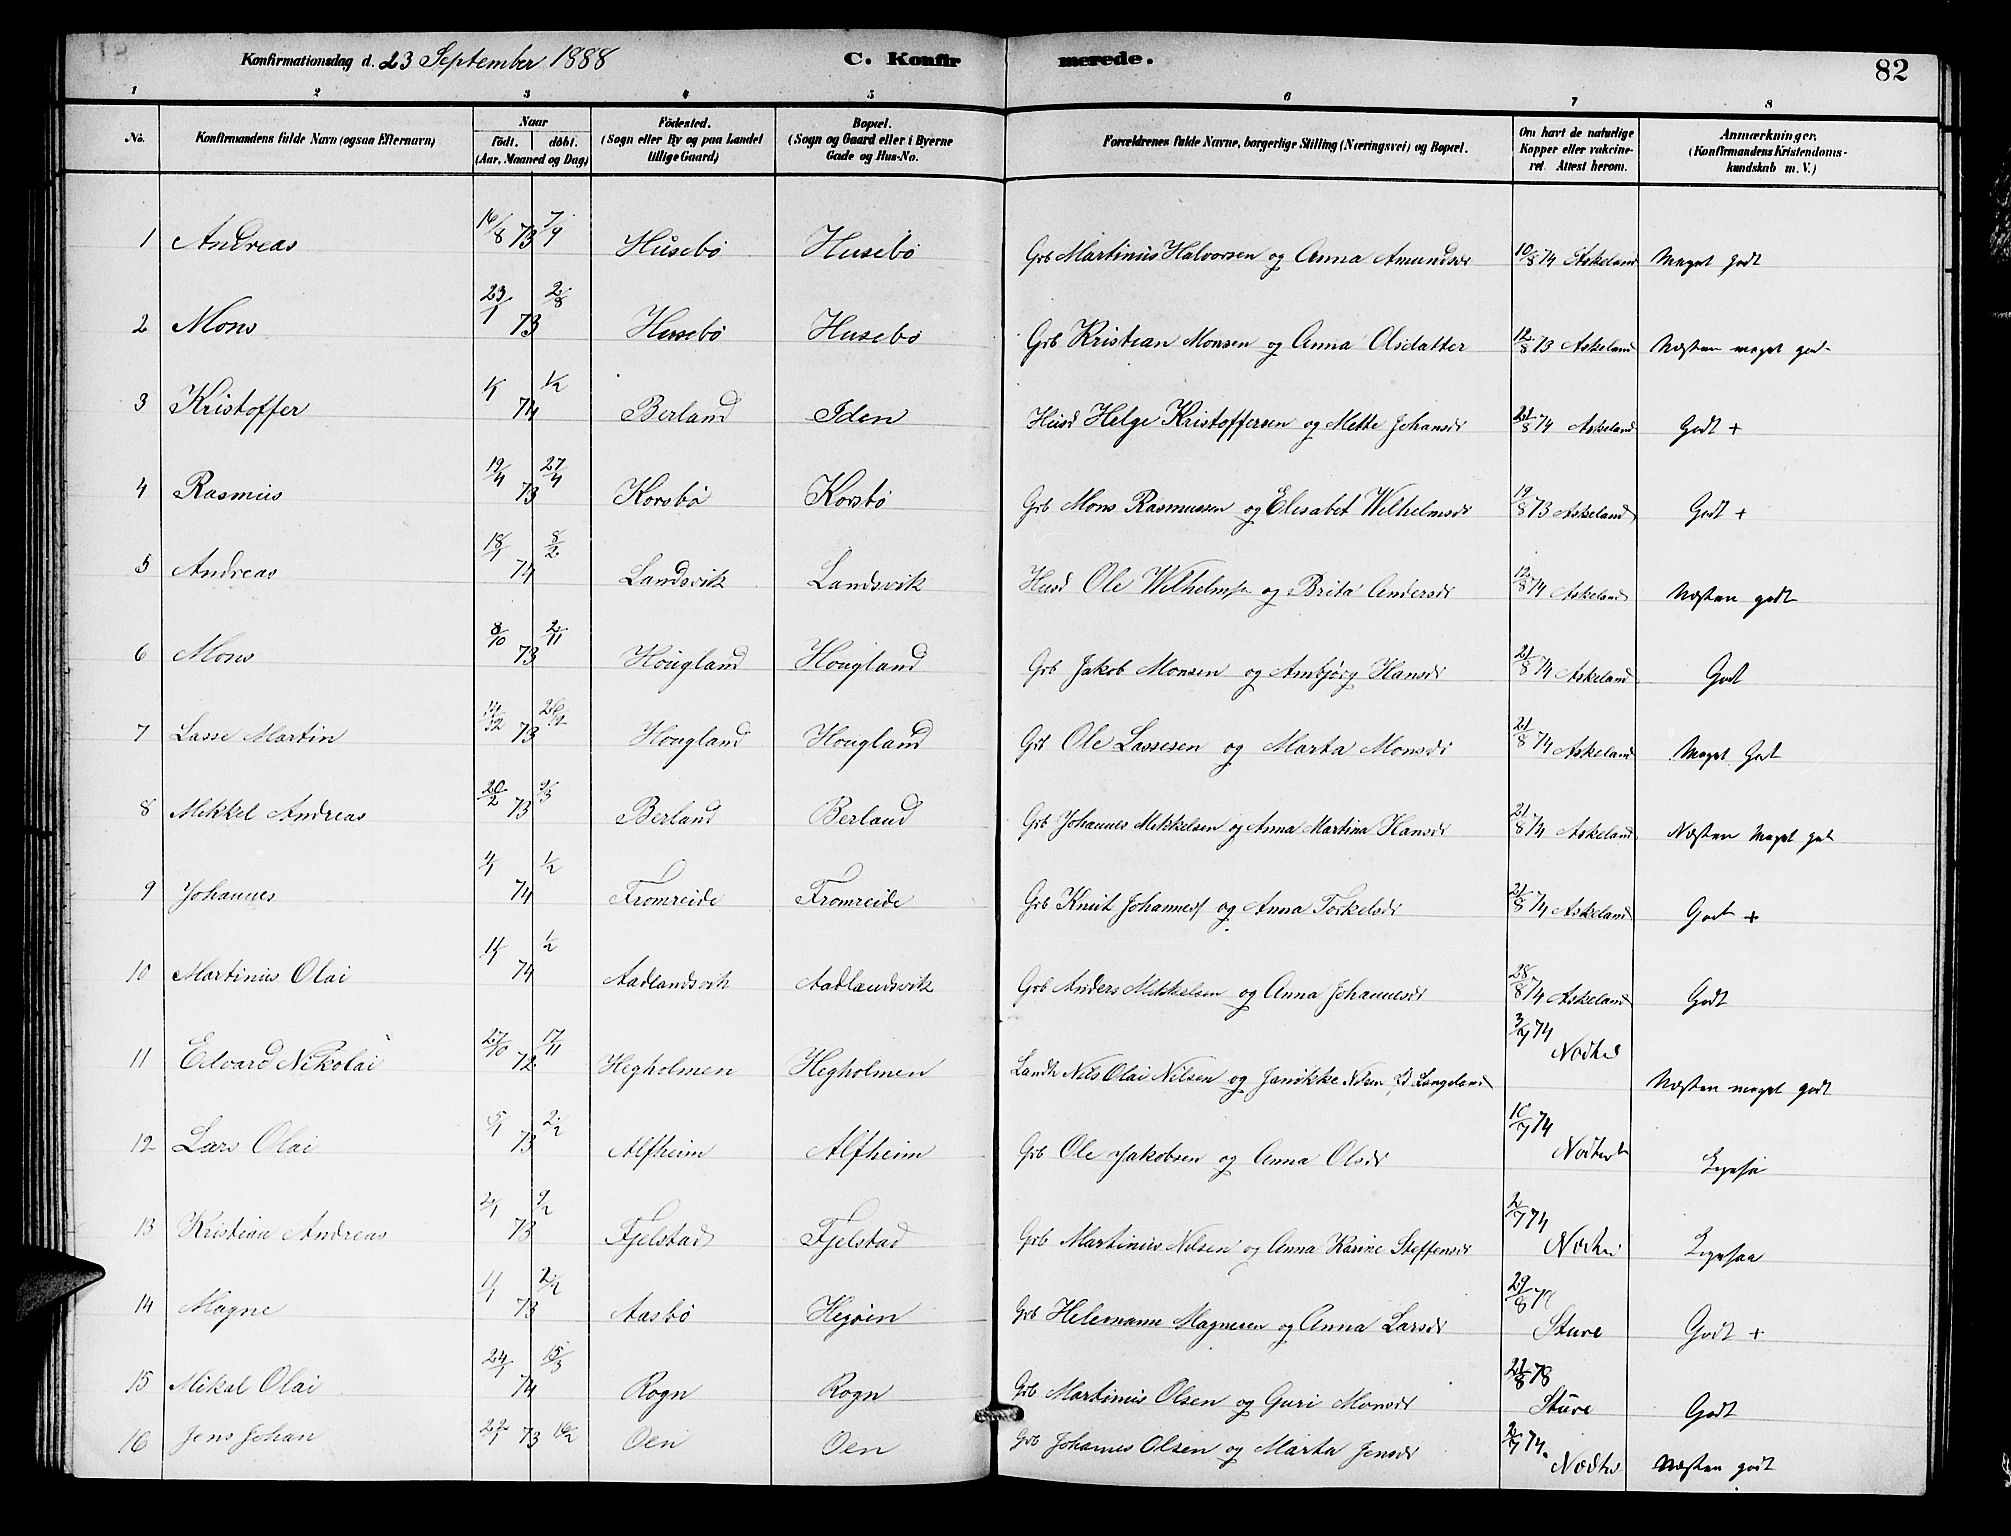 Konfirmationsdag d. 23 September 1888 C. Konfirmerede. 82
1 2 3 4 5 6 7 8
No. Konfirmandens fulde Navn (ogsaa Efternavn) Naar födt. döbt. (Aar, Maaned og Dag) Födested. (Sogn eller By og paa Landet tillige Gaard) Bopæl. (Sogn og Gaard eller i Byerne Gade og Hus-No. Forældrenes fulde Navne, borgerlige Stilling (Næringsvei) og Bopæl. Om havt de naturlige Kopper eller vakcineret. Attest herom. Anmærkninger. (Konfirmandens Kristendomskundskab m. V.)
1 Andreas 16/8 73 7/9 Husebö Husebö Grb Martinus Halvorsen og Anna Amundsdr 10/8 74 Askeland Meget godt
2 Mons 23/1 73 2/8 Husebö Husebö Grb Kristian Monsen og Anna Olsdatter 12/8 73 Askeland Næsten meget god
3 Kristoffer 74 1/2 Berland Iden Husd Helge Kristoffersen og Mette Johansdr 21/8 74 Askeland Godt +
4 Rasmus 19/4 73 27/4 Korsbö Korsbö Grb Mons Rasmussen og Elisabet Wilhelmsdr 19/8 73 Askeland Godt +
5 Andreas 18/1 74 8/2 Landsvik Landsvik Husd Ole Wilhelmsen og Brita Andersdr 12/8 74 Askeland Næsten godt
6 Mons 8/10 73 2/11 Hougland Hougland Grb Jakob Monsen og Ambjørg Hansdr 21/8 74 Askeland Godt
7 Lasse Martin 73 Hougland Hougland Grb Ole Lassesen og Marta Monsdr 21/8 74 Askeland Meget Godt
8 Mikkel Andreas 20/2 73 9/3 Berland Berland Grb Johannes Mikkelsen og Anna Martina Hansdr 21/8 74 Askeland Næsten Meget godt
9 Johannes 74 1/2 Fromreide Fromreide Grb Knut Johannes og Anna Torkelsdr 21/8 74 Askeland Godt +
10 Martinus Olai 74 1/2 Aadlandsvik Aadlandsvik Grb Anders Mikkelsen og Anna Johannesdr 28/8 74 Askeland Godt
11 Edvard Nikolai 27/10 72 17/11 Hegholmen Hegholmen Landh Nils Olai Nilsen og Janikke Nilsen Langeland 3/7 74 Næsten meget godt
12 Lars Olai 5/1 73 2/2 Alfheim Alfheim Grb Ole Jakobsen og Anna Olsdr 10/7 74
13 Kristian Andreas 2/1 73 9/2 Fjelstad Fjelstad Grb Martinus Nilsen og Anna Karine Steffensdr 2/7 74
14 Magne 73 2/2 Aasbö Hegöen Grb Helemann Magnesen og Anna Larsdr 29/8 78 Sture Godt +
15 Mikal Olai 24/1 74 15/3 Rogn Rogn Grb Martinus Olsen og Guri Monsdr 21/8 78 Sture Godt
16 Jens Johan 22/1 73 16/2 Oen Oen Grb Johannes Olsen og Marta Jensdr 2/7 74. Næsten godt